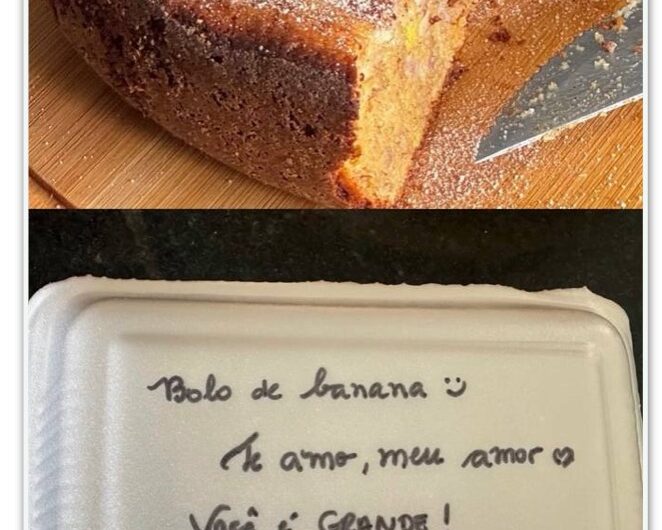 Bolo de banana :)
Te amo, meu amor ♡
Você é GRANDE!